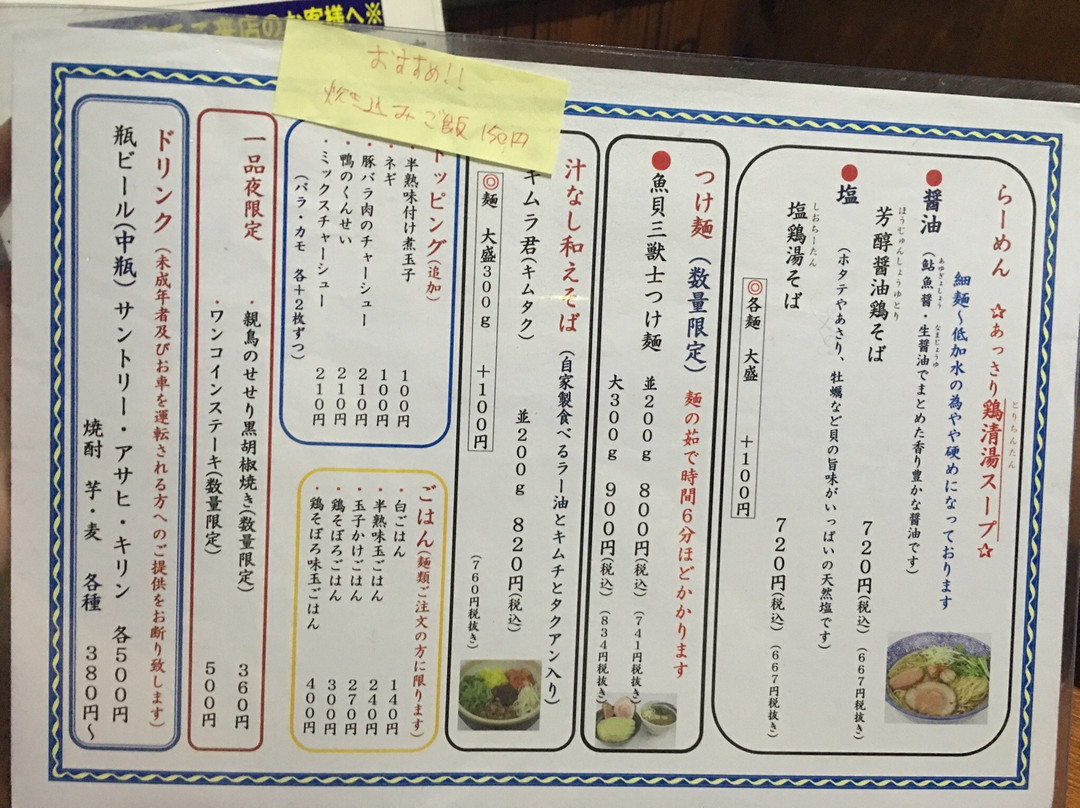 てご来店のお客様へ※
おすすめ!!
炊き込みご飯 150円
らーめん ☆あっさり鶏清湯スープ☆
とりちんたん
細麺~低加水の為やや硬めになっております
●醤油 (鮎魚醤・生醤油でまとめた香り豊かな醤油です)
あゆぎょしょう なまじょうゆ
ほうじゅんしょうゆとり
芳醇醤油鶏そば 720円(税込) (667円税抜き)
●塩 (ホタテやあさり、牡蠣など貝の旨味がいっぱいの天然塩です)
しおちーたん
塩鶏湯そば 720円(税込) (667円税抜き)
◎各麺 大盛 +100円
つけ麺 (数量限定) 麺の茹で時間6分ほどかかります
●魚貝三獣士つけ麺 並200g 800円(税込) (741円税抜き)
大300g 900円(税込) (834円税抜き)
汁なし和えそば (自家製食べるラー油とキムチとタクアン入り)
キムラ君(キムタク) 並200g 820円(税込) (760円税抜き)
◎麺 大盛300g +100円
トッピング(追加)
・半熟味付け煮玉子 100円
・ネギ 100円
・豚バラ肉のチャーシュー 210円
・鴨のくんせい 210円
・ミックスチャーシュー 210円
(バラ・カモ 各+2枚ずつ)
ごはん(麺類ご注文の方に限ります)
・白ごはん 140円
・半熟味玉ごはん 240円
・玉子かけごはん 270円
・鶏そぼろごはん 300円
・鶏そぼろ味玉ごはん 400円
一品夜限定
・親鳥のせせり黒胡椒焼き(数量限定) 360円
・ワンコインステーキ(数量限定) 500円
ドリンク (未成年者及びお車を運転される方へのご提供をお断り致します)
瓶ビール(中瓶) サントリー・アサヒ・キリン 各500円
焼酎 芋・麦 各種 380円~